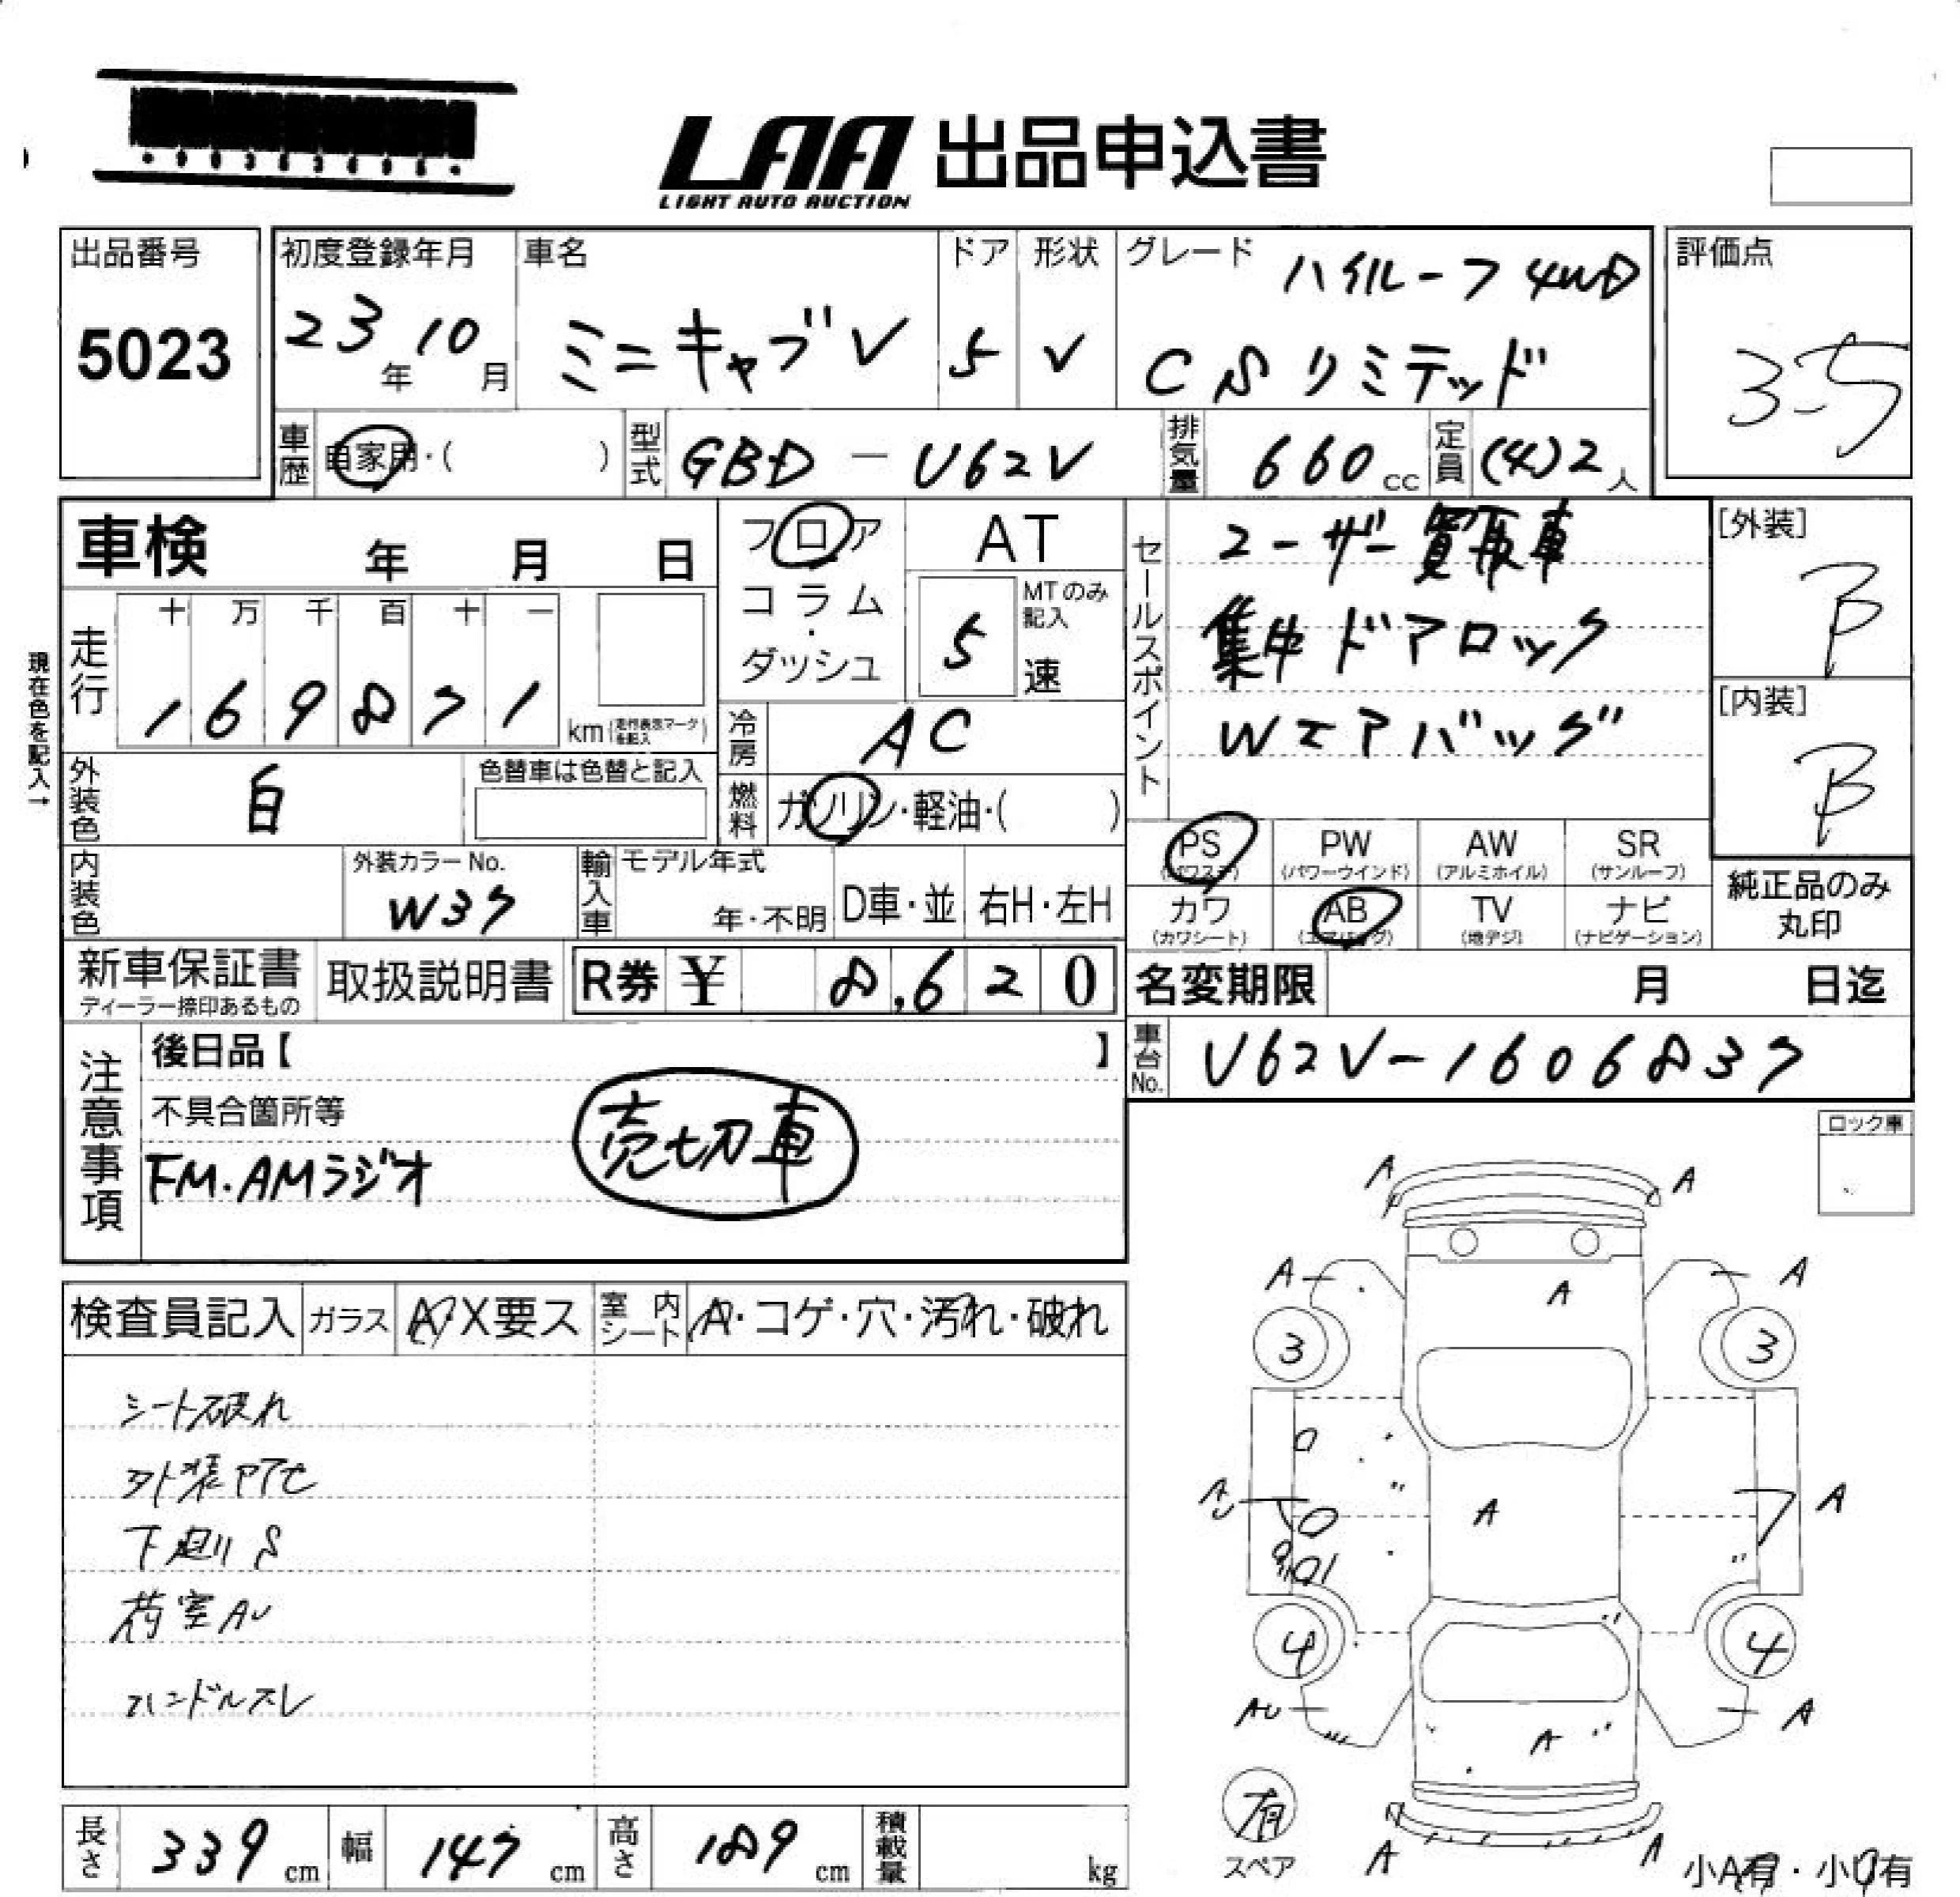 LAA 出品申込書
LIGHT AUTO AUCTION
出品番号 5023
初度登録年月 23年10月
車名 ミニキャブV
ドア 5
形状 V
グレード ハイルーフ 4WD
CSリミテッド
評価点 3-5
車歴 自家用・( )
型式 GBD-U62V
排気量 660cc
定員 (4)2人
車検 年 月 日
フロア
コラム・
ダッシュ
AT
MTのみ記入
5速
走行 十万千百十一
169871 km(走行表示マークを記入)
現在色を記入→
外装色 白
色替車は色替と記入
冷房 AC
燃料 ガソリン・軽油・( )
内装色
外装カラーNo. W37
輸入車 モデル年式 年・不明 D車・並 右H・左H
セールスポイント
ユーザー買取車
集中ドアロック
Wエアバッグ
[外装] B
[内装] B
PS (パワステ) PW (パワーウインド) AW (アルミホイル) SR (サンルーフ)
カワ (カワシート) AB (エアバッグ) TV (地デジ) ナビ (ナビゲーション)
純正品のみ
丸印
新車保証書
ディーラー捺印あるもの
取扱説明書
R券 ¥ 8,620
名変期限 月 日迄
車台No. U62V-1606837
注意事項
後日品【 】
不具合箇所等
FM.AMラジオ
売切車
ロック車
検査員記入 ガラス A/X要ス 室内シート A・コゲ・穴・汚れ・破れ
シート破れ
外装ヤケ
下廻りS
荷室AU
ハンドルスレ
A A
A A A
3 3
A A
4 4
AU A A
有
スペア
A A
小A有・小U有
長さ 339cm
幅 147cm
高さ 189cm
積載量 kg